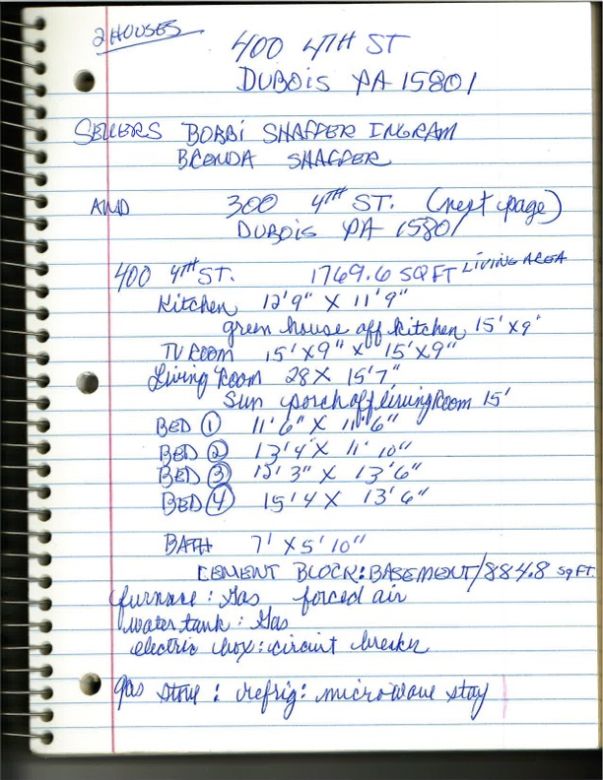 2 HOUSES
400 4TH ST
DUBOIS PA 15801
SELLERS BOBBI SHAFFER INGRAM
BRENDA SHAFFER
AND 300 4TH ST. (next page)
DUBOIS PA 15801
400 4TH ST. 1769.6 SQ FT LIVING AREA
Kitchen 12'9" X 11'9"
green house off kitchen 15'X9'
TV ROOM 15'X9" X 15'X9"
Living Room 28 X 15'7"
Sun porch off living Room 15'
BED 1 11'6" X 11'6"
BED 2 13'4" X 11' 10"
BED 3 12'3" X 13'6"
BED 4 15'4 X 13'6"
BATH 7' X 5'10"
CEMENT BLOCK: BASEMENT/884.8 SqFT.
furnace: Gas forced air
water tank: Gas
electric box: circuit breaker
gas stove: refrig: microwave stay